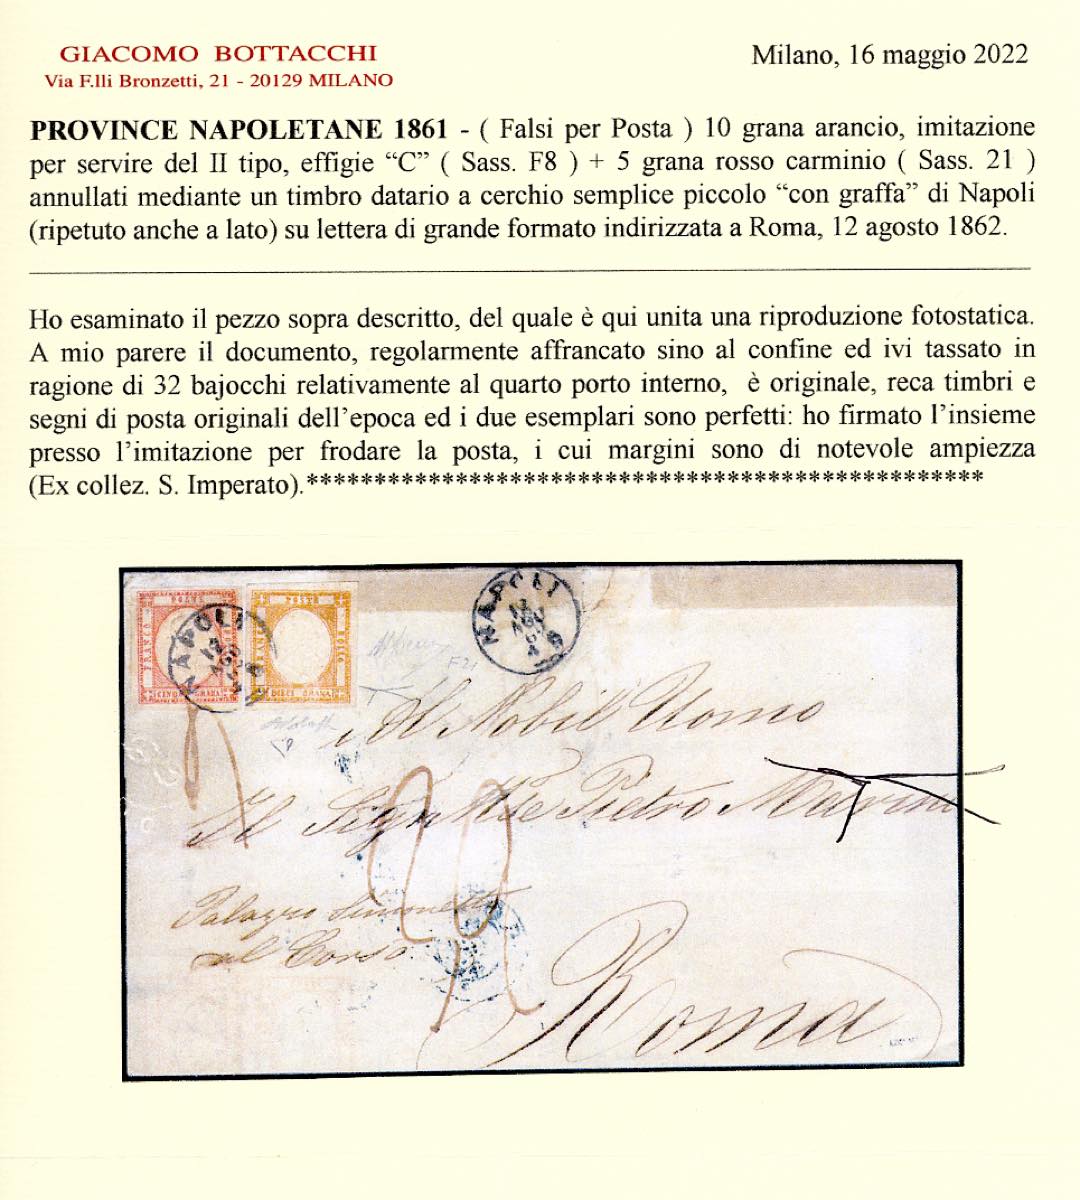 GIACOMO BOTTACCHI
Via F.lli Bronzetti, 21 - 20129 MILANO
Milano, 16 maggio 2022
PROVINCE NAPOLETANE 1861 - ( Falsi per Posta ) 10 grana arancio, imitazione
per servire del II tipo, effigie “C” ( Sass. F8 ) + 5 grana rosso carminio ( Sass. 21 )
annullati mediante un timbro datario a cerchio semplice piccolo “con graffa” di Napoli
(ripetuto anche a lato) su lettera di grande formato indirizzata a Roma, 12 agosto 1862.
Ho esaminato il pezzo sopra descritto, del quale è qui unita una riproduzione fotostatica.
A mio parere il documento, regolarmente affrancato sino al confine ed ivi tassato in
ragione di 32 bajocchi relativamente al quarto porto interno, è originale, reca timbri e
segni di posta originali dell’epoca ed i due esemplari sono perfetti: ho firmato l’insieme
presso l’imitazione per frodare la posta, i cui margini sono di notevole ampiezza
(Ex collez. S. Imperato).**************************************************
POSTA
FRANCO
CINQUE GRANA
POSTA
BOLLO
DIECI GRANA
NAPOLI
12
AGO
NAPOLI
12
AGO
Al Nobil Uomo
Il Sign. Pietro
Palazzo
al Corso
Roma